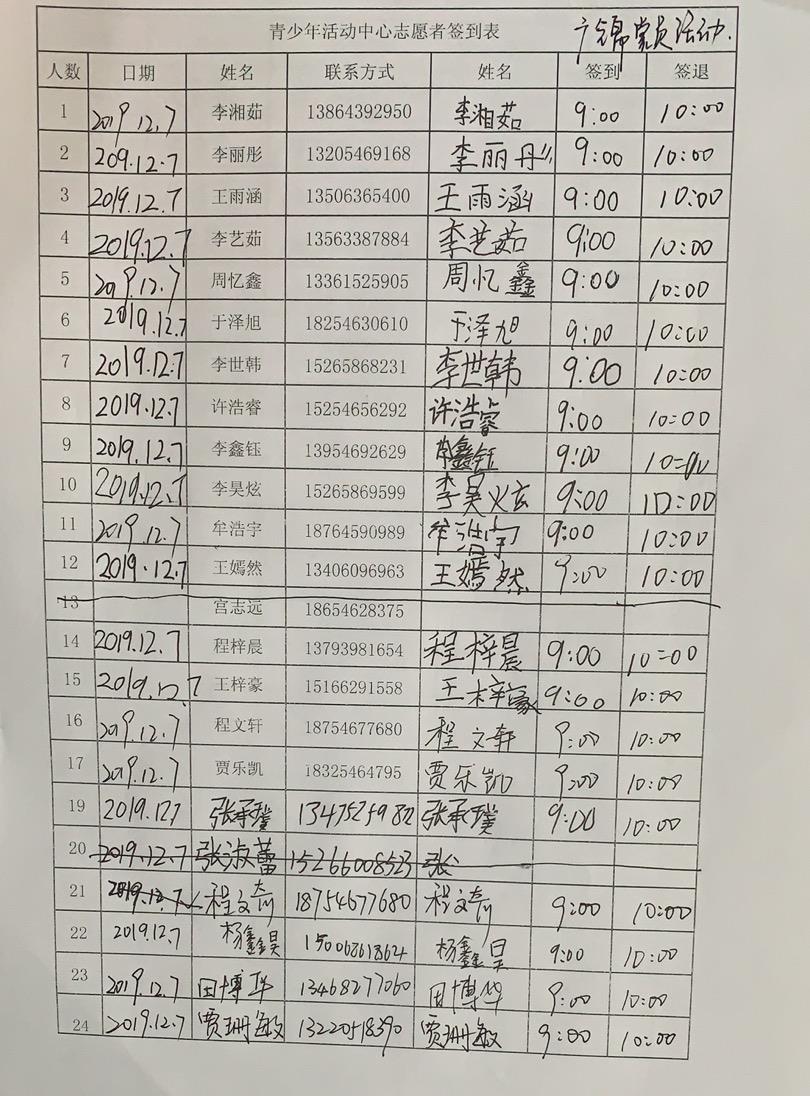 青少年活动中心志愿者签到表 广锦党员活动.
人数 日期 姓名 联系方式 姓名 签到 签退
1 2019.12.7 李湘茹 13864392950 李湘茹 9:00 10:00
2 209.12.7 李丽彤 13205469168 李丽彤 9:00 10:00
3 2019.12.7 王雨涵 13506365400 王雨涵 9:00 10:00
4 2019.12.7 李艺茹 13563387884 李艺茹 9:00 10:00
5 2019.12.7 周忆鑫 13361525905 周忆鑫 9:00 10:00
6 2019.12.7 于泽旭 18254630610 于泽旭 9:00 10:00
7 2019.12.7 李世韩 15265868231 李世韩 9:00 10:00
8 2019.12.7 许浩睿 15254656292 许浩睿 9:00 10:00
9 2019.12.7 李鑫钰 13954692629 李鑫钰 9:00 10:00
10 2019.12.7 李昊炫 15265869599 李昊炫 9:00 10:00
11 2019.12.7 牟浩宇 18764590989 牟浩宇 9:00 10:00
12 2019.12.7 王嫣然 13406096963 王嫣然 9:00 10:00
13 宫志远 18654628375
14 2019.12.7 程梓晨 13793981654 程梓晨 9:00 10:00
15 2019.12.7 王梓豪 15166291558 王梓豪 9:00 10:00
16 2019.12.7 程文轩 18754677680 程文轩 9:00 10:00
17 2019.12.7 贾乐凯 18325464795 贾乐凯 9:00 10:00
19 2019.12.7 张承璞 张承璞 9:00 10:00
20 2019.12.7 张淑蕾 15266008523 张
21 2019.12.7 程文奇 18754677680 程文奇 9:00 10:00
22 2019.12.7 杨鑫昊 15006861864 杨鑫昊 9:00 10:00
23 2019.12.7 田博华 13468277060 田博华 9:00 10:00
24 2019.12.7 贾珊敏 13220518390 贾珊敏 9:00 10:00